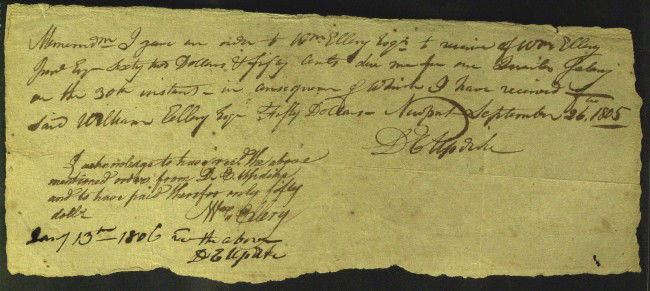 Memorandm I gave an order to Wm Ellery Esqr to receive of Wm Ellery
Junr Esqr Sixty two Dollars & fifty Cents due me for one Quarter Salary
on the 30th instant — in consequence of which I have received
said William Ellery Esqr Fifty Dollars — Newport September 26th 1805
D E Updike
I acknowledge to have recd the above
mentioned order from D. E Updike
and to have paid therefor only fifty
dollrs
Wm Ellery
Jany 13th 1806 the above
D E Updike